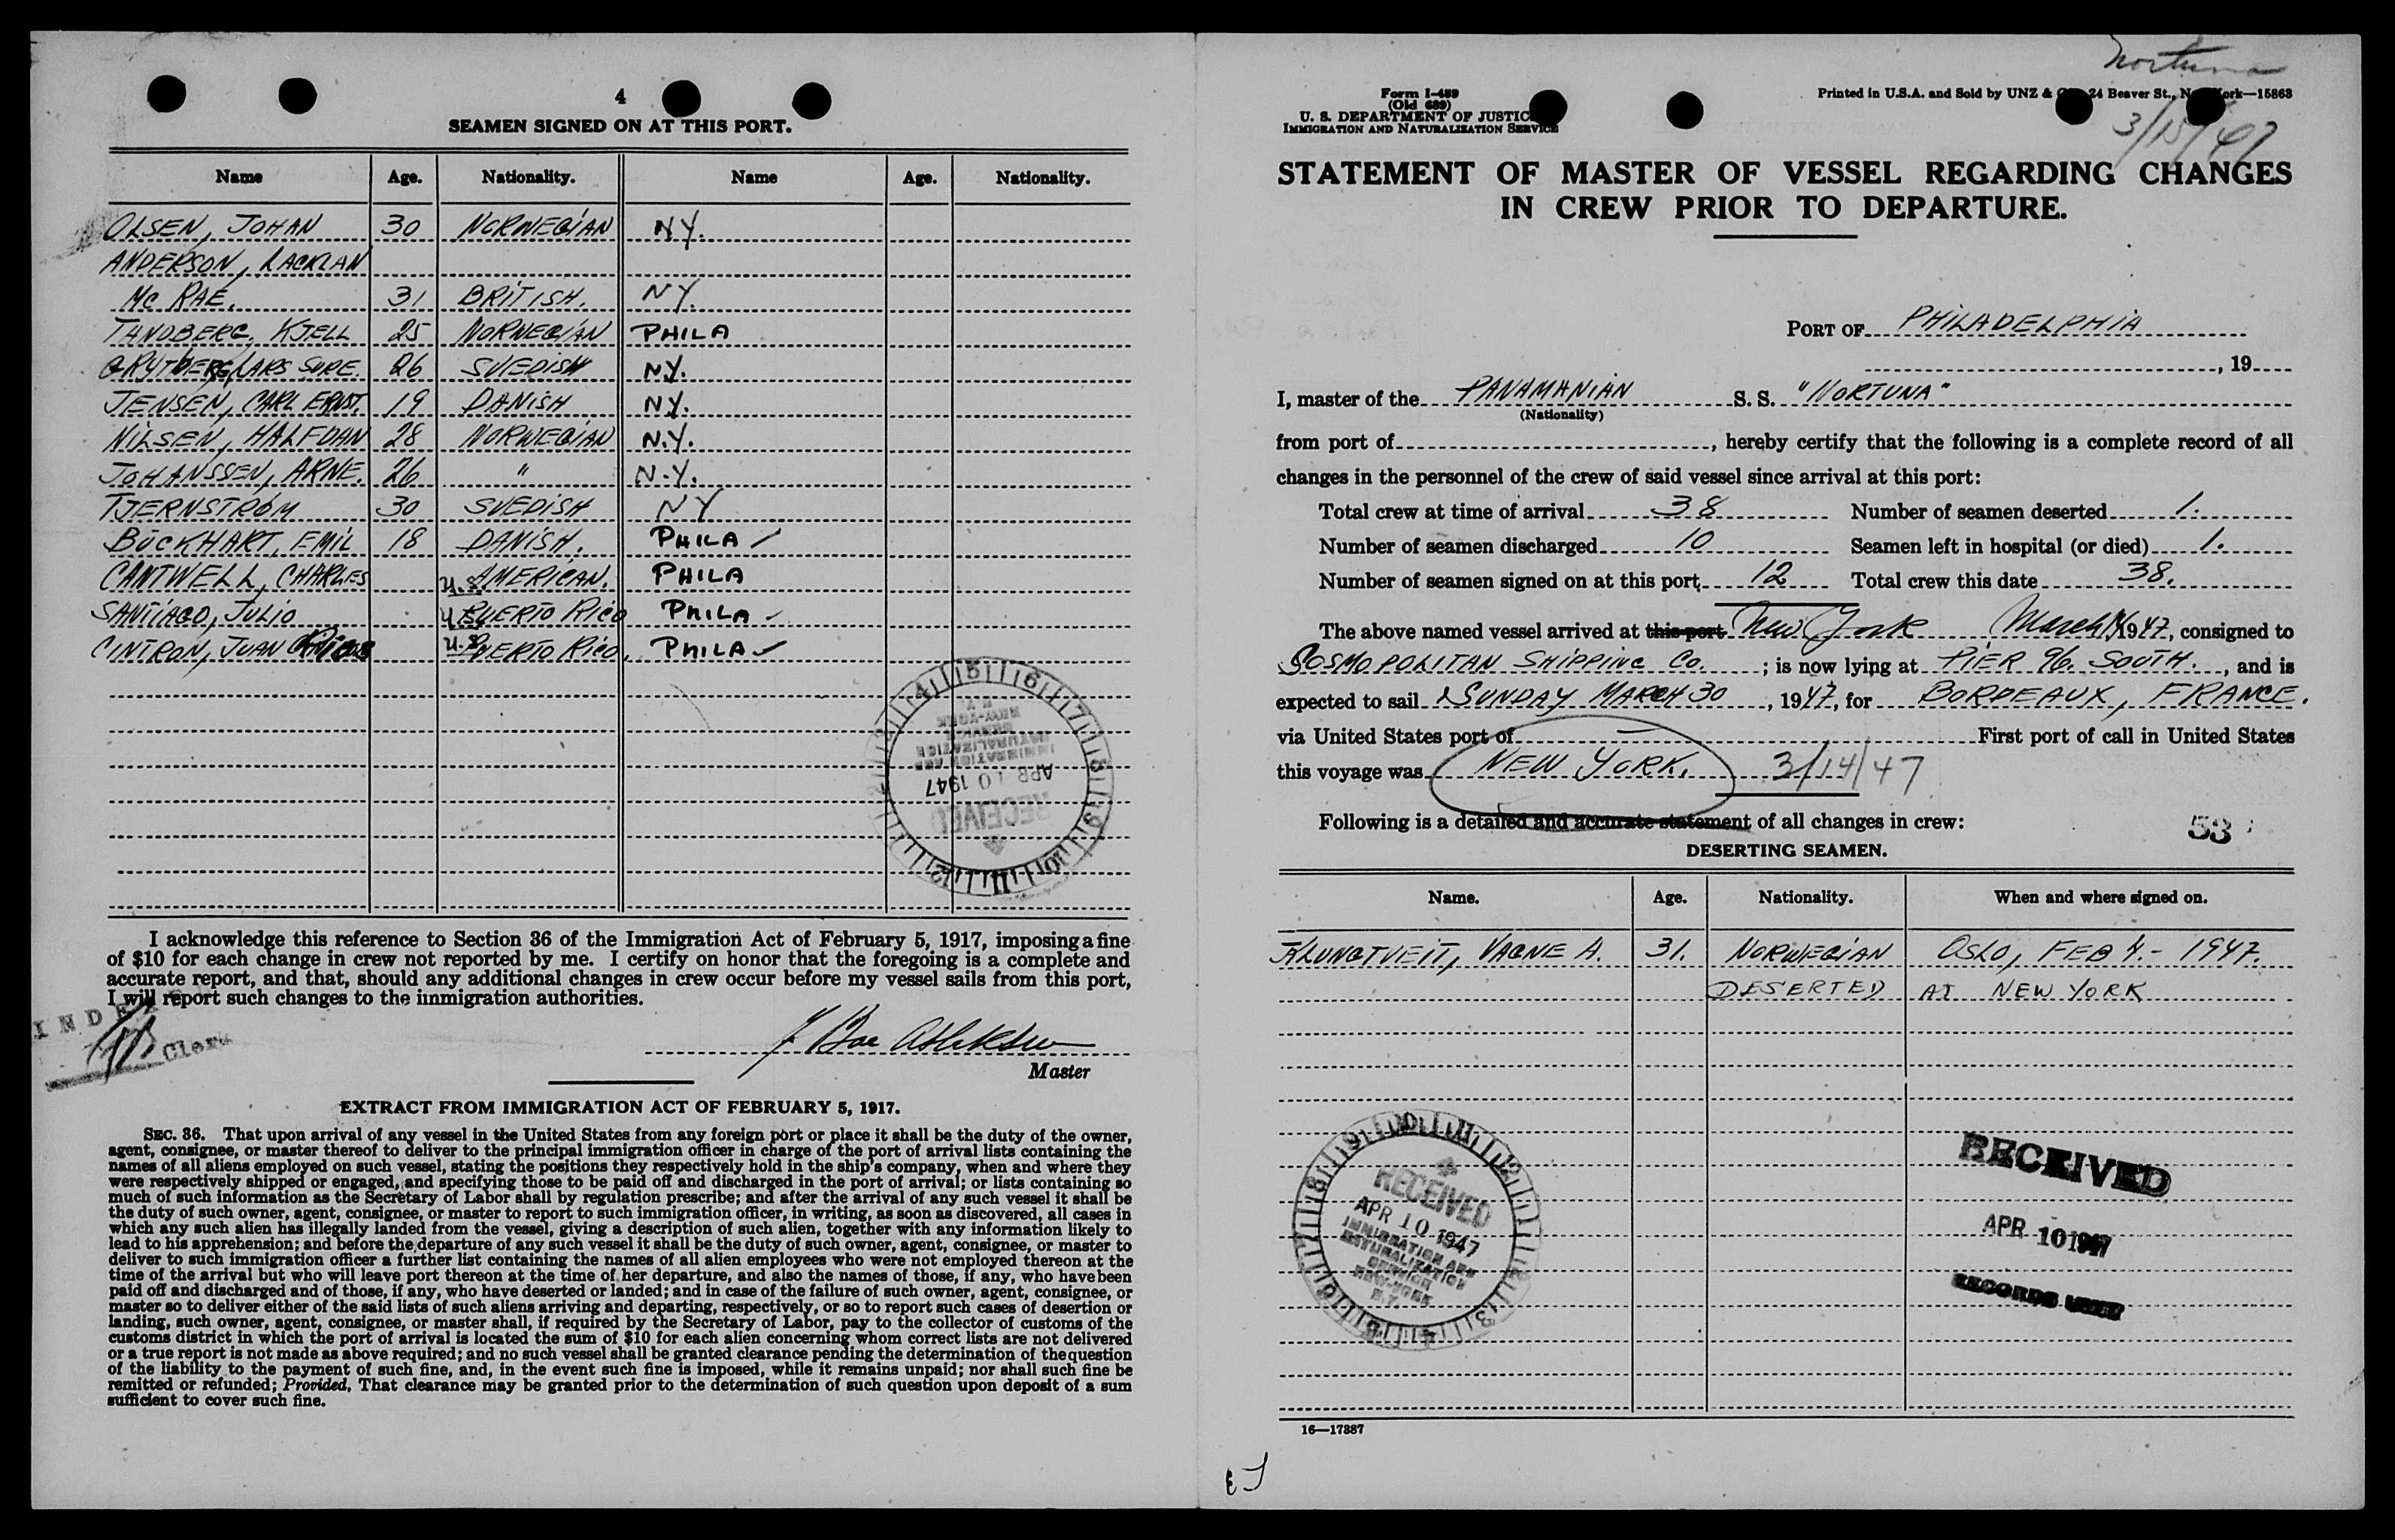 4
SEAMEN SIGNED ON AT THIS PORT.
Name Age. Nationality. Name Age. Nationality.
OLSEN, JOHAN 30 NORWEGIAN N.Y.
ANDERSON, LACKLAN
Mc RAE. 31 BRITISH. NY.
TANDBERG, KJELL 25 NORWEGIAN PHILA
GRYTBERG, LARS SURE. 26 SVEDISH N.Y.
JENSEN, CARL ERNST. 19 DANISH N.Y.
NILSEN, HALFDAN 28 NORWEGIAN N.Y.
JOHANSSEN, ARNE. 26 " N.Y.
TJERNSTRØM 30 SVEDISH NY
BÜCKHART, EMIL 18 DANISH. PHILA ✓
CANTWELL, CHARLES U.S. AMERICAN. PHILA
SANTIAGO, JULIO U.S. PUERTO RICO PHILA ✓
CINTRON, JUAN RIOS U.S. PUERTO RICO. PHILA ✓
RECEIVED
APR 10 1947
IMMIGRATION AND
NATURALIZATION
SERVICE
NEW-YORK
N.Y.
I acknowledge this reference to Section 36 of the Immigration Act of February 5, 1917, imposing a fine
of $10 for each change in crew not reported by me. I certify on honor that the foregoing is a complete and
accurate report, and that, should any additional changes in crew occur before my vessel sails from this port,
I will report such changes to the immigration authorities.
Clerk
Master
EXTRACT FROM IMMIGRATION ACT OF FEBRUARY 5, 1917.
SEC. 36. That upon arrival of any vessel in the United States from any foreign port or place it shall be the duty of the owner,
agent, consignee, or master thereof to deliver to the principal immigration officer in charge of the port of arrival lists containing the
names of all aliens employed on such vessel, stating the positions they respectively hold in the ship's company, when and where they
were respectively shipped or engaged, and specifying those to be paid off and discharged in the port of arrival; or lists containing so
much of such information as the Secretary of Labor shall by regulation prescribe; and after the arrival of any such vessel it shall be
the duty of such owner, agent, consignee, or master to report to such immigration officer, in writing, as soon as discovered, all cases in
which any such alien has illegally landed from the vessel, giving a description of such alien, together with any information likely to
lead to his apprehension; and before the departure of any such vessel it shall be the duty of such owner, agent, consignee, or master to
deliver to such immigration officer a further list containing the names of all alien employees who were not employed thereon at the
time of the arrival but who will leave port thereon at the time of her departure, and also the names of those, if any, who have been
paid off and discharged and of those, if any, who have deserted or landed; and in case of the failure of such owner, agent, consignee, or
master so to deliver either of the said lists of such aliens arriving and departing, respectively, or so to report such cases of desertion or
landing, such owner, agent, consignee, or master shall, if required by the Secretary of Labor, pay to the collector of customs of the
customs district in which the port of arrival is located the sum of $10 for each alien concerning whom correct lists are not delivered
or a true report is not made as above required; and no such vessel shall be granted clearance pending the determination of the question
of the liability to the payment of such fine, and, in the event such fine is imposed, while it remains unpaid; nor shall such fine be
remitted or refunded; Provided, That clearance may be granted prior to the determination of such question upon deposit of a sum
sufficient to cover such fine.
Nortuna
3/15/47
Form I-489
(Old 689)
U. S. DEPARTMENT OF JUSTICE
IMMIGRATION AND NATURALIZATION SERVICE
Printed in U.S.A. and Sold by UNZ & 24 Beaver St., New York—15863
STATEMENT OF MASTER OF VESSEL REGARDING CHANGES
IN CREW PRIOR TO DEPARTURE.
PORT OF PHILADELPHIA
, 19
I, master of the PANAMANIAN S. S. "NORTUNA"
(Nationality)
from port of , hereby certify that the following is a complete record of all
changes in the personnel of the crew of said vessel since arrival at this port:
Total crew at time of arrival 38 Number of seamen deserted 1.
Number of seamen discharged 10 Seamen left in hospital (or died) 1.
Number of seamen signed on at this port 12 Total crew this date 38.
The above named vessel arrived at this port New York March 14 1947, consigned to
COSMOPOLITAN SHIPPING CO. ; is now lying at PIER 96. SOUTH. , and is
expected to sail SUNDAY MARCH 30 , 1947, for BORDEAUX, FRANCE.
via United States port of First port of call in United States
this voyage was NEW YORK. 3/14/47
Following is a detailed and accurate statement of all changes in crew:
53
DESERTING SEAMEN.
Name. Age. Nationality. When and where signed on.
KLUNGTVEIT, VAGNE A. 31. NORWEGIAN OSLO, FEB 4.- 1947.
DESERTED AT NEW YORK
RECEIVED
APR 10 1947
IMMIGRATION AND
NATURALIZATION
SERVICE
NEW-YORK
N.Y.
RECEIVED
APR 10 1947
RECORDS UNIT
16—17387